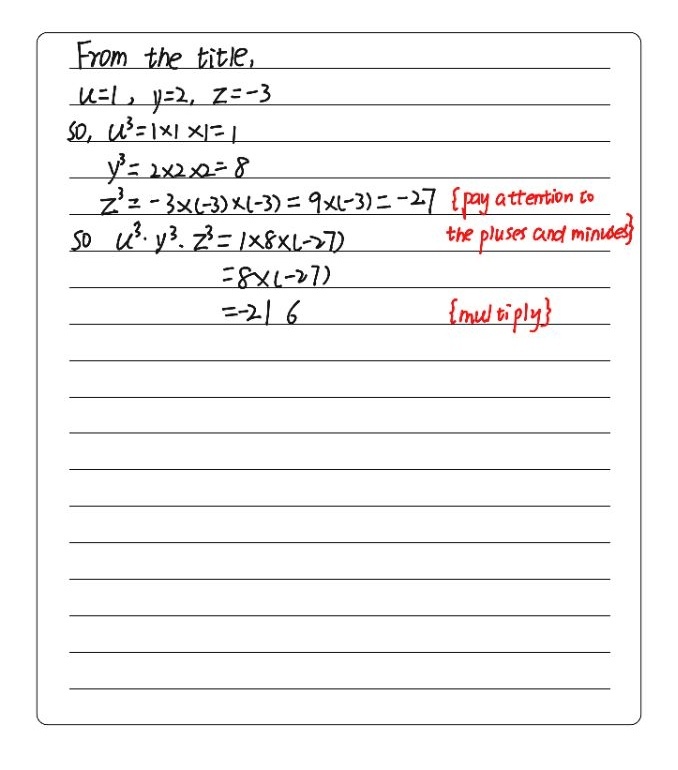 From the title,
u=1, y=2, z=-3
so, u³=1×1×1=1
y³=2×2×2=8
z³=-3×(-3)×(-3)=9×(-3)=-27 {pay attention to
the pluses and minuses}
so u³·y³·z³=1×8×(-27)
=8×(-27)
=-216 {multiply}